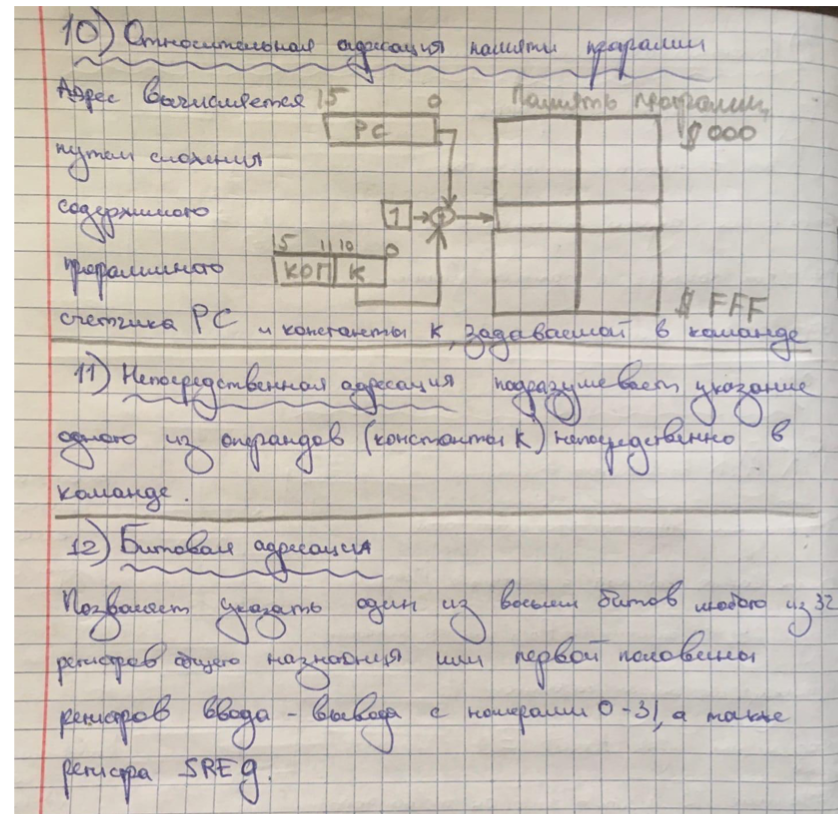 10) Относительная адресация памяти программ
Адрес вычисляется
путем сложения
содержимого
программного
счетчика PC и константы K, задаваемой в команде
15 0
PC
1
+
15 11 10 0
КОП K
Память программ
$000
$FFF
11) Непосредственная адресация подразумевает указание
одного из операндов (константы K) непосредственно в
команде.
12) Битовая адресация
Позволяет указать один из восьми битов любого из 32
регистров общего назначения или первой половины
регистров ввода - вывода с номерами 0-31, а также
регистра SREG.